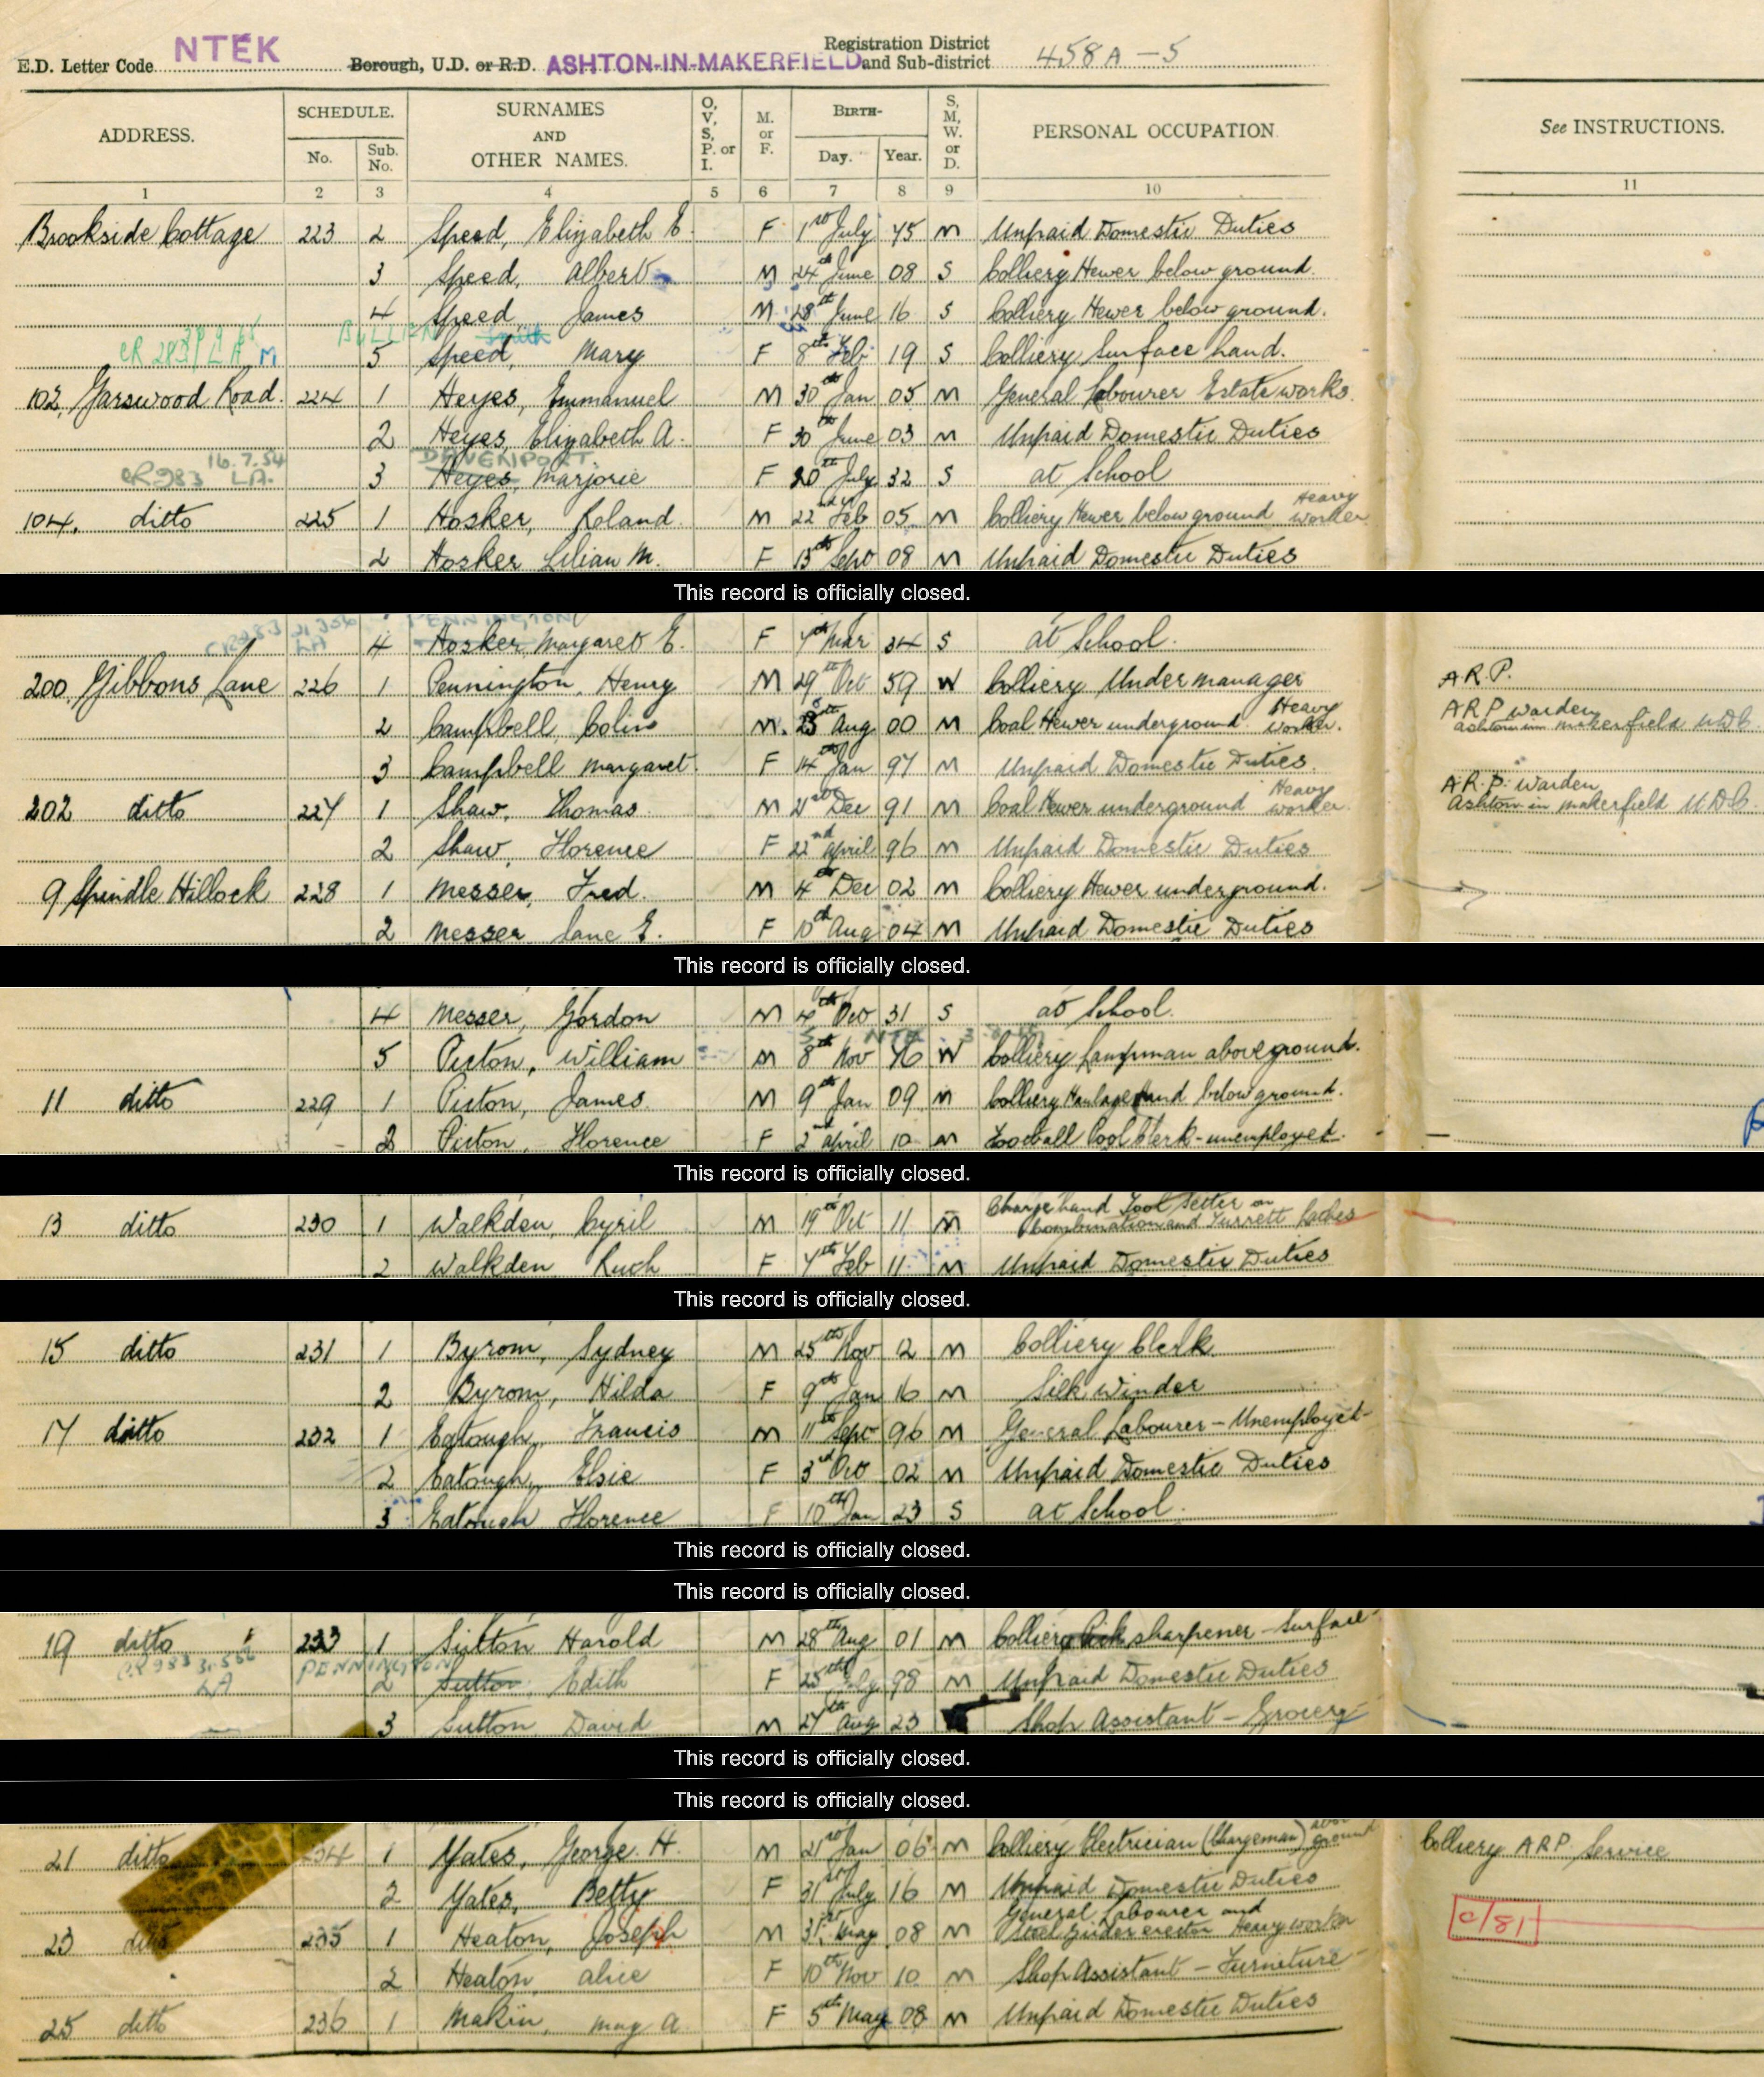 E.D. Letter Code NTEK Borough, U.D. or R.D. ASHTON-IN-MAKERFIELD Registration District and Sub-district 458A-5
ADDRESS. SCHEDULE. SURNAMES AND OTHER NAMES. O, V, S, P. or I. M. or F. BIRTH- S, M, W. or D. PERSONAL OCCUPATION See INSTRUCTIONS.
No. Sub. No. Day. Year.
1 2 3 4 5 6 7 8 9 10 11
Brookside Cottage 223 2 Speed, Elizabeth E. F 1st July 75 M Unpaid Domestic Duties
3 Speed, Albert M 24th June 08 S Colliery Hewer below ground.
4 Speed James M 28th June 16 S Colliery Hewer below ground.
CR 283 LA M BULLEN Smith
5 Speed, Mary F 8th Feb 19 S Colliery Surface hand.
102, Garswood Road. 224 1 Heyes, Emmanuel M 30th Jan 05 M General Labourer Estate works.
2 Heyes, Elizabeth A. F 30th June 03 M Unpaid Domestic Duties
CR983 16.7.54 LA. DAVENPORT
3 Heyes, Marjorie F 20th July 32 S at School
104, ditto 225 1 Hosker, Roland M 22nd Feb 05 M Colliery Hewer below ground Heavy Worker
2 Hosker Lilian M. F 13th Sept 08 M Unpaid Domestic Duties
This record is officially closed.
CR283 LA PENNINGTON
4 Hosker, Margaret E. F 7th Mar 34 S at School.
200, Gibbons Lane 226 1 Pennington, Henry M 29th Oct 59 W Colliery Under manager A.R.P.
2 Campbell, Colin M. Aug 00 M Coal Hewer underground Heavy Worker. A R P Warden Ashton in Makerfield U.D.C.
3 Campbell Margaret F 14th Jan 97 M Unpaid Domestic Duties.
202 ditto 227 1 Shaw, Thomas M 21st Dec 91 M Coal Hewer underground Heavy Worker A.R.P. Warden Ashton in Makerfield U.D.C.
2 Shaw, Florence F 22nd April 96 M Unpaid Domestic Duties
9 Spindle Hillock 228 1 Messer, Fred. M 4th Dec 02 M Colliery Hewer underground.
2 Messer Jane E. F 10th Aug 04 M Unpaid Domestic Duties
This record is officially closed.
4 Messer, Gordon M 4th Oct 31 S at School.
5 Picton, William M 8th Nov 76 W Colliery Lampman above ground.
11 ditto 229 1 Picton, James. M 9th Jan 09 M Colliery Haulage Hand below ground.
2 Picton, Florence F 2nd April 10 M Football Pool Clerk - unemployed.
This record is officially closed.
13 ditto 230 1 Walkden, Cyril M 19th Oct 11 M Charge hand Tool Setter on Combination and Turrett Lathes
2 Walkden Ruth F 7th Feb 11 M Unpaid Domestic Duties
This record is officially closed.
15 ditto 231 1 Byrom, Sydney M 25th Nov 12 M Colliery Clerk.
2 Byrom, Hilda F 9th Jan 16 M Silk Winder
17 ditto 232 1 Eatough, Francis M 11th Sept 96 M General Labourer - Unemployed
2 Eatough, Elsie F 3rd Oct 02 M Unpaid Domestic Duties
3 Eatough Florence F 10th Jan 23 S at School.
This record is officially closed.
This record is officially closed.
19 ditto 233 1 Sutton Harold M 28th Aug 01 M Colliery Pick sharpener - Surface
CR983 LA PENNINGTON
2 Sutton, Edith F 25th July 98 M Unpaid Domestic Duties
3 Sutton David M 27th Aug 23 Shop Assistant - Grocery
This record is officially closed.
This record is officially closed.
21 ditto 234 1 Yates, George H. M 21st Jan 06 M Colliery Electrician (Chargeman) above ground Colliery A R P Service
2 Yates, Betty F 31st July 16 M Unpaid Domestic Duties
23 ditto 235 1 Heaton, Joseph M 31st May 08 M General Labourer and Steel Girder erector Heavy worker C/81
2 Heaton, Alice F 10th Nov 10 M Shop Assistant - Furniture
25 ditto 236 1 Makin, May A F 5th May 08 M Unpaid Domestic Duties